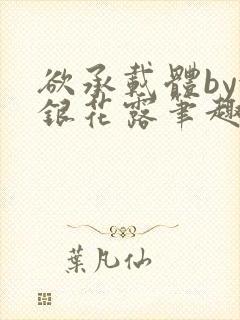 欲承載體by
銀花露筆趣
葉凡仙